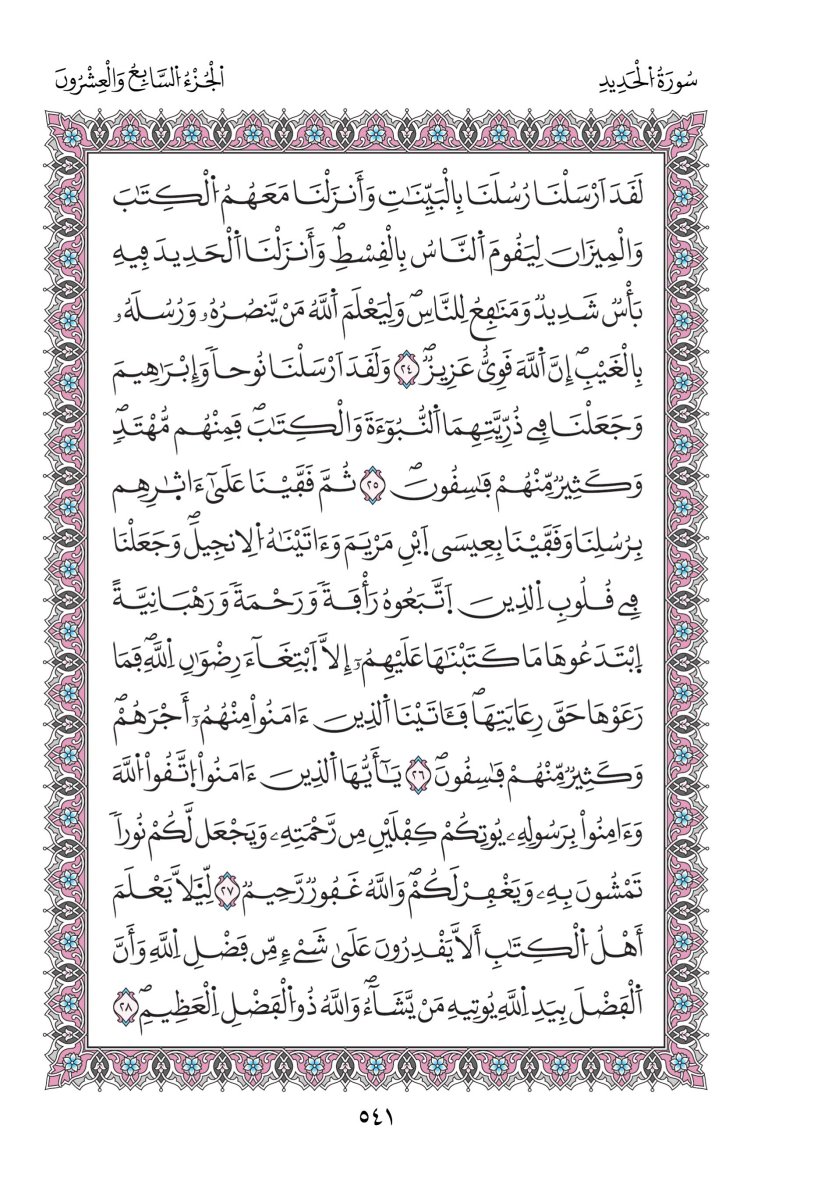 سُورَةُ اُ۬لْحَدِيدِ
اَ۬لْجُزْءُ اُ۬لسَّابِعُ وَالْعِشْرُونَ
لَقَدَ اَرْسَلْنَا رُسُلَنَا بِالْبَيِّنَٰتِ وَأَنزَلْنَا مَعَهُمُ اُ۬لْكِتَٰبَ
وَالْمِيزَانَ لِيَقُومَ اَ۬لنَّاسُ بِالْقِسْطِۖ وَأَنزَلْنَا اَ۬لْحَدِيدَ فِيهِ
بَأْسٞ شَدِيدٞ وَمَنَٰفِعُ لِلنَّاسِۖ وَلِيَعْلَمَ اَ۬للَّهُ مَنْ يَّنصُرُهُۥ وَرُسُلَهُۥ
بِالْغَيْبِۖ إِنَّ اَ۬للَّهَ قَوِيٌّ عَزِيزٞۖ ٢٤ وَلَقَدَ اَرْسَلْنَا نُوحاٗ وَإِبْرَٰهِيمَ
وَجَعَلْنَا فِے ذُرِّيَّتِهِمَا اَ۬لنُّبُوٓءَةَ وَالْكِتَٰبَۖ فَمِنْهُم مُّهْتَدٖۖ
وَكَثِيرٞ مِّنْهُمْ فَٰسِقُونَۖ ٢٥ ثُمَّ قَفَّيْنَا عَلَىٰٓ ءَاثٰ۪رِهِم
بِرُسُلِنَا وَقَفَّيْنَا بِعِيسَى اَ۪بْنِ مَرْيَمَ وَءَاتَيْنَٰهُ اُ۬لِانجِيلَۖ وَجَعَلْنَا
فِے قُلُوبِ اِ۬لذِينَ اَ۪تَّبَعُوهُ رَأْفَةٗ وَرَحْمَةٗ وَرَهْبَانِيَّةً
اِ۪بْتَدَعُوهَا مَا كَتَبْنَٰهَا عَلَيْهِمُۥٓ إِلَّا اَ۪بْتِغَآءَ رِضْوَٰنِ اِ۬للَّهِۖ فَمَا
رَعَوْهَا حَقَّ رِعَايَتِهَاۖ فَـَٔاتَيْنَا اَ۬لذِينَ ءَامَنُواْ مِنْهُمُۥٓ أَجْرَهُمْۖ
وَكَثِيرٞ مِّنْهُمْ فَٰسِقُونَۖ ٢٦ يَٰٓأَيُّهَا اَ۬لذِينَ ءَامَنُواْ اُ۪تَّقُواْ اُ۬للَّهَ
وَءَامِنُواْ بِرَسُولِهِۦ يُوتِكُمْ كِفْلَيْنِ مِن رَّحْمَتِهِۦ وَيَجْعَل لَّكُمْ نُوراٗ
تَمْشُونَ بِهِۦ وَيَغْفِرْ لَكُمْۖ وَاللَّهُ غَفُورٞ رَّحِيمٞ ٢٧ لِّيَ۬لَّا يَعْلَمَ
أَهْلُ اُ۬لْكِتَٰبِ أَلَّا يَقْدِرُونَ عَلَىٰ شَےْءٖ مِّن فَضْلِ اِ۬للَّهِ وَأَنَّ
اَ۬لْفَضْلَ بِيَدِ اِ۬للَّهِ يُوتِيهِ مَنْ يَّشَآءُۖ وَاللَّهُ ذُو اُ۬لْفَضْلِ اِ۬لْعَظِيمِۖ ٢٨
٥٤١